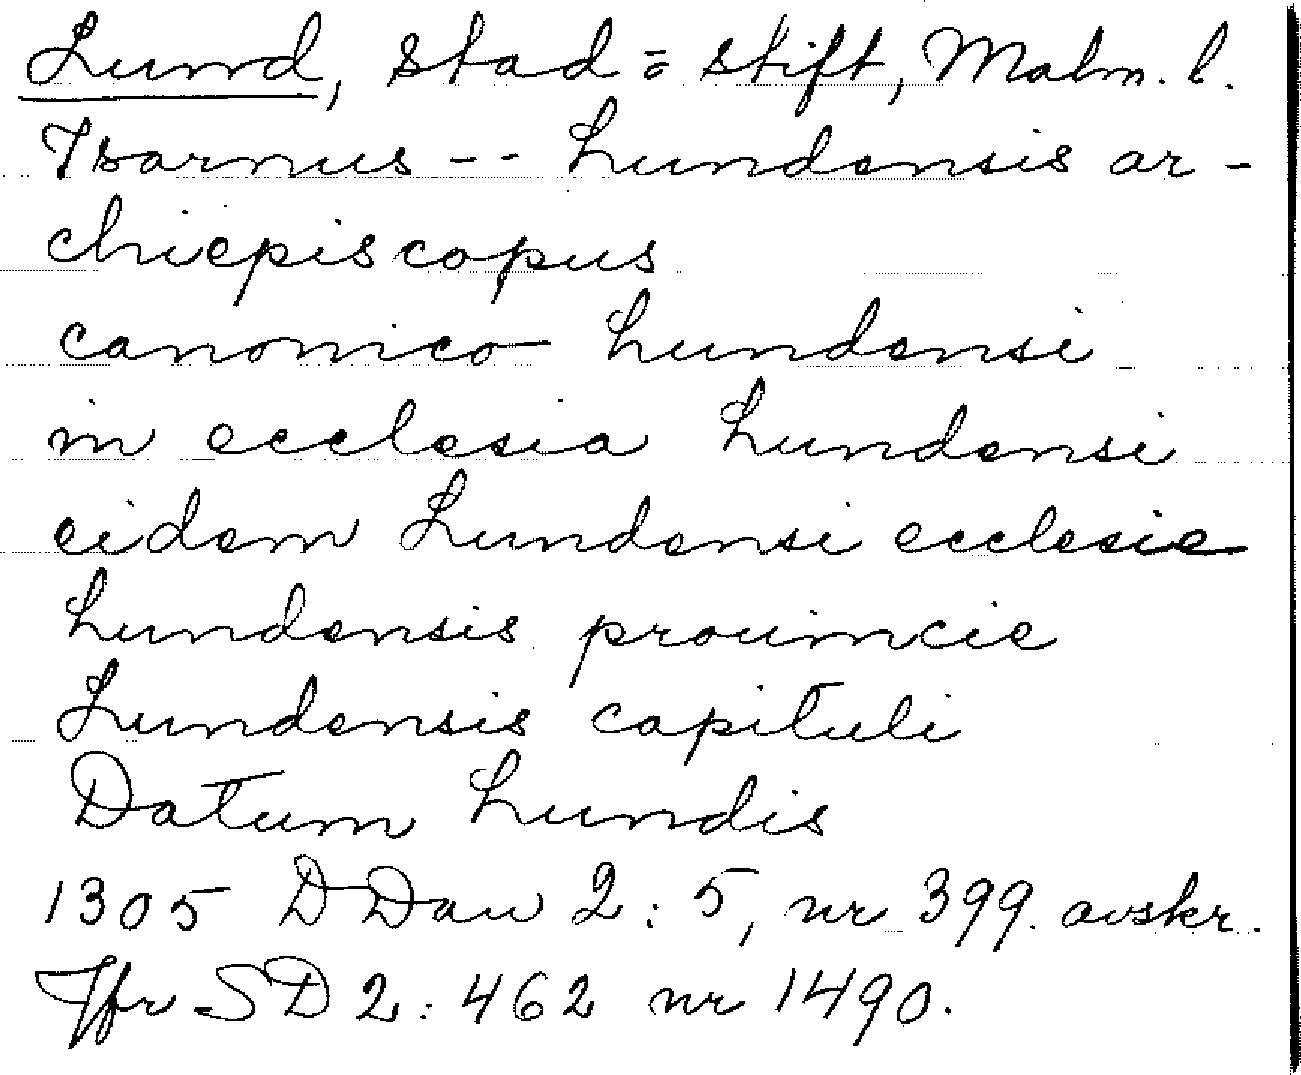 Lund, stad = stift, Malm. l.
Isarnus -- Lundensis ar-
chiepiscopus
canonico Lundensi
in ecclesia Lundensi
eidem Lundensi ecclesie
Lundensis prouincie
Lundensis capituli
Datum Lundis
1305 DDan 2:5, nr 399. avskr.
Jfr SD 2: 462 nr 1490.